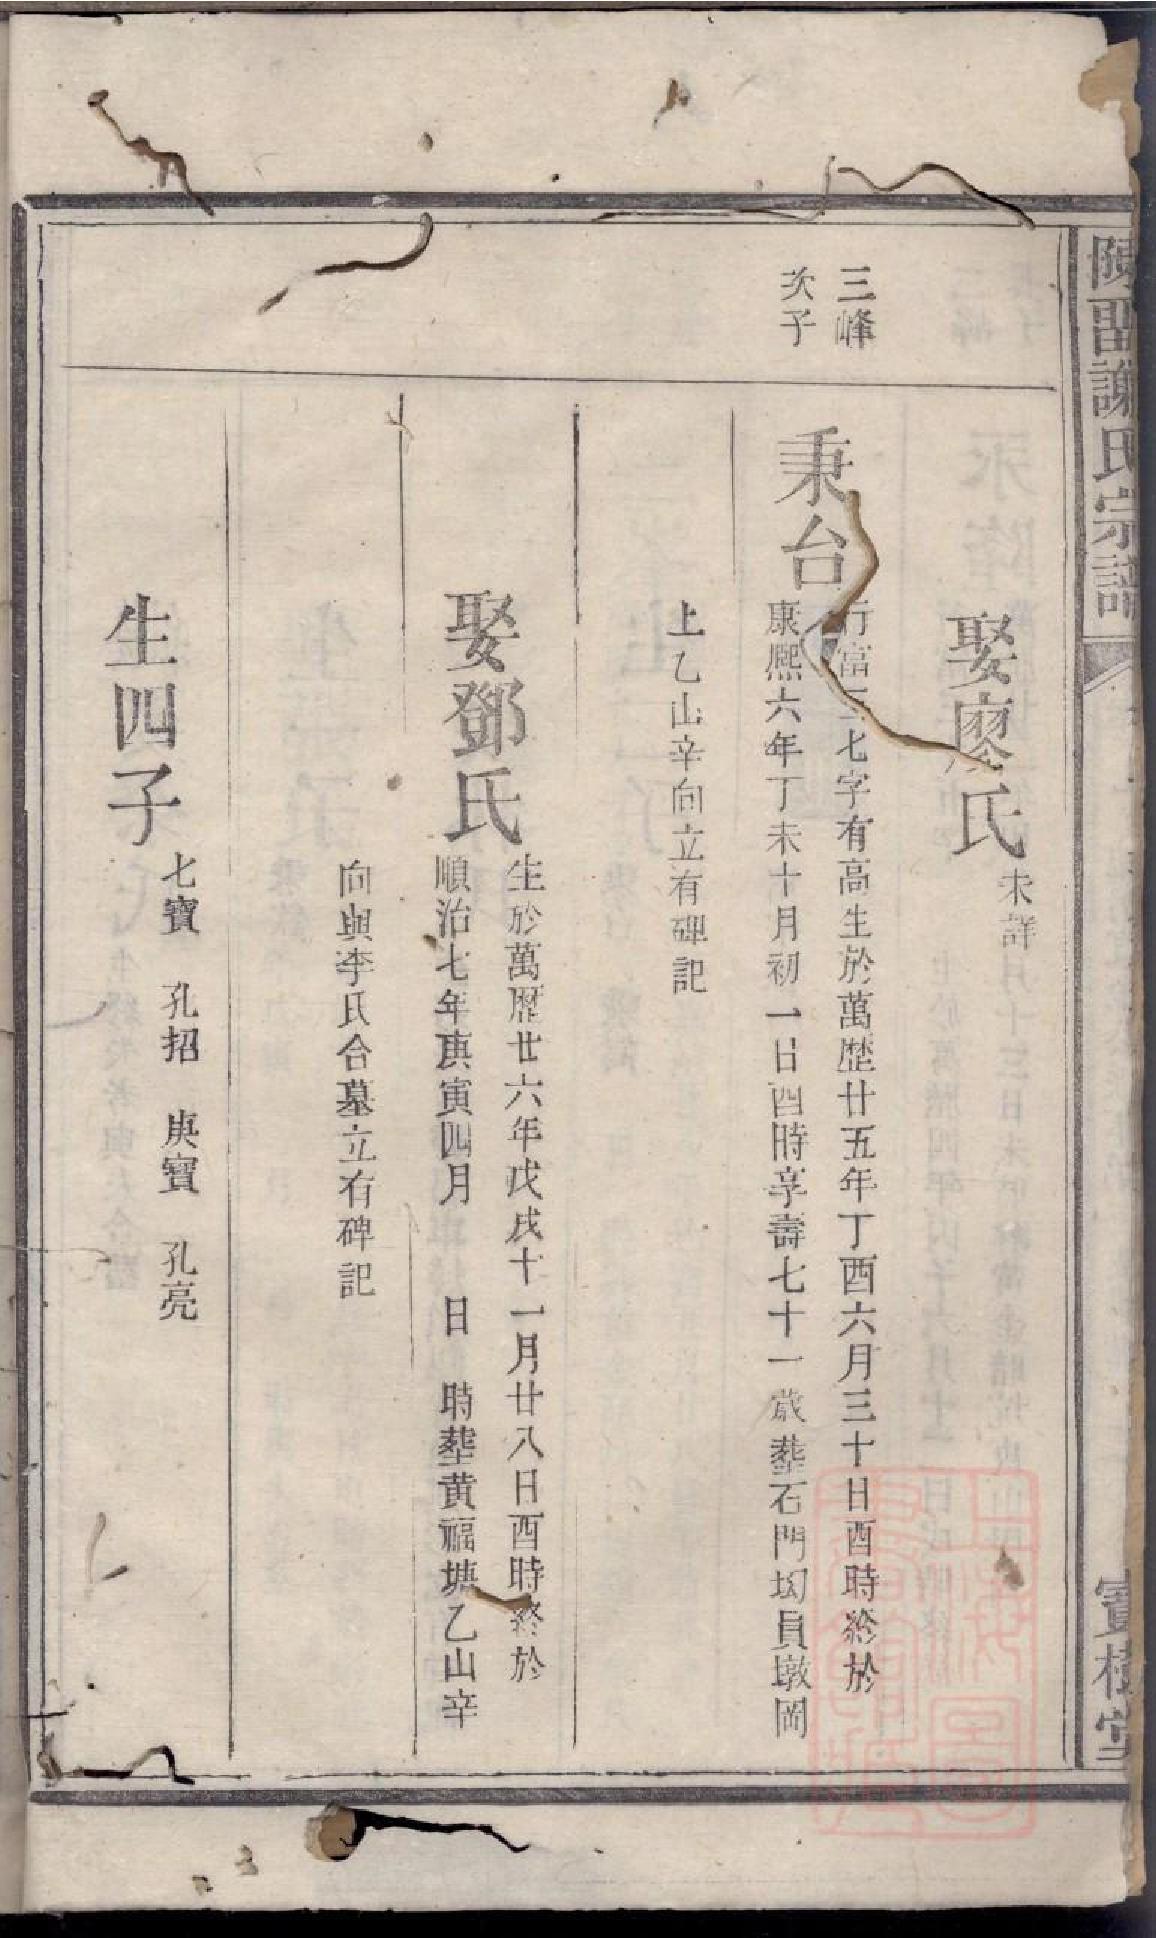 陳畱謝氏宗譜
寳樹堂
娶廖氏
未詳
三峰
次子
秉台
行富三七字有高生於萬歴廿五年丁酉六月三十日酉時終於
康熈六年丁未十月初一日酉時享壽七十一歳塟石門㘭員墩岡
上乙山辛向立有碑記
娶鄧氏
生於萬歴廿六年戊戌十一月廿八日酉時終於
順治七年庚寅四月 日 時塟黄福塘乙山辛
向與李氏合墓立有碑記
生四子
七寳 孔招 庚寳 孔亮